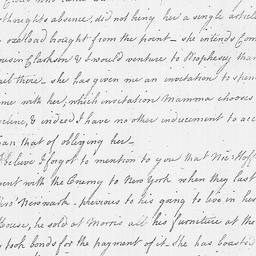 thnights absence, did not bring her a single article
overload bought from the point_ she intends Com
ousin Clarkson & I would venture to Prophesey than
ail there. she has given me an invitation to spen
ime with her, which invitation Mamma chooses
ecline, & indeed I have no other inducement to acc
an that of obliging her_
I believe I forgot to mention to you that Mrs. Hoff
went with the Enemy to New York when they last
thro' Newark _ previous to his going to live in hes
House, he sold at Morris all his furniture at the
took bonds for the payment of it. she has boasted